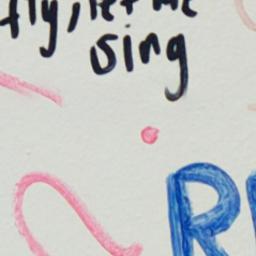 fly, let me
sing
R